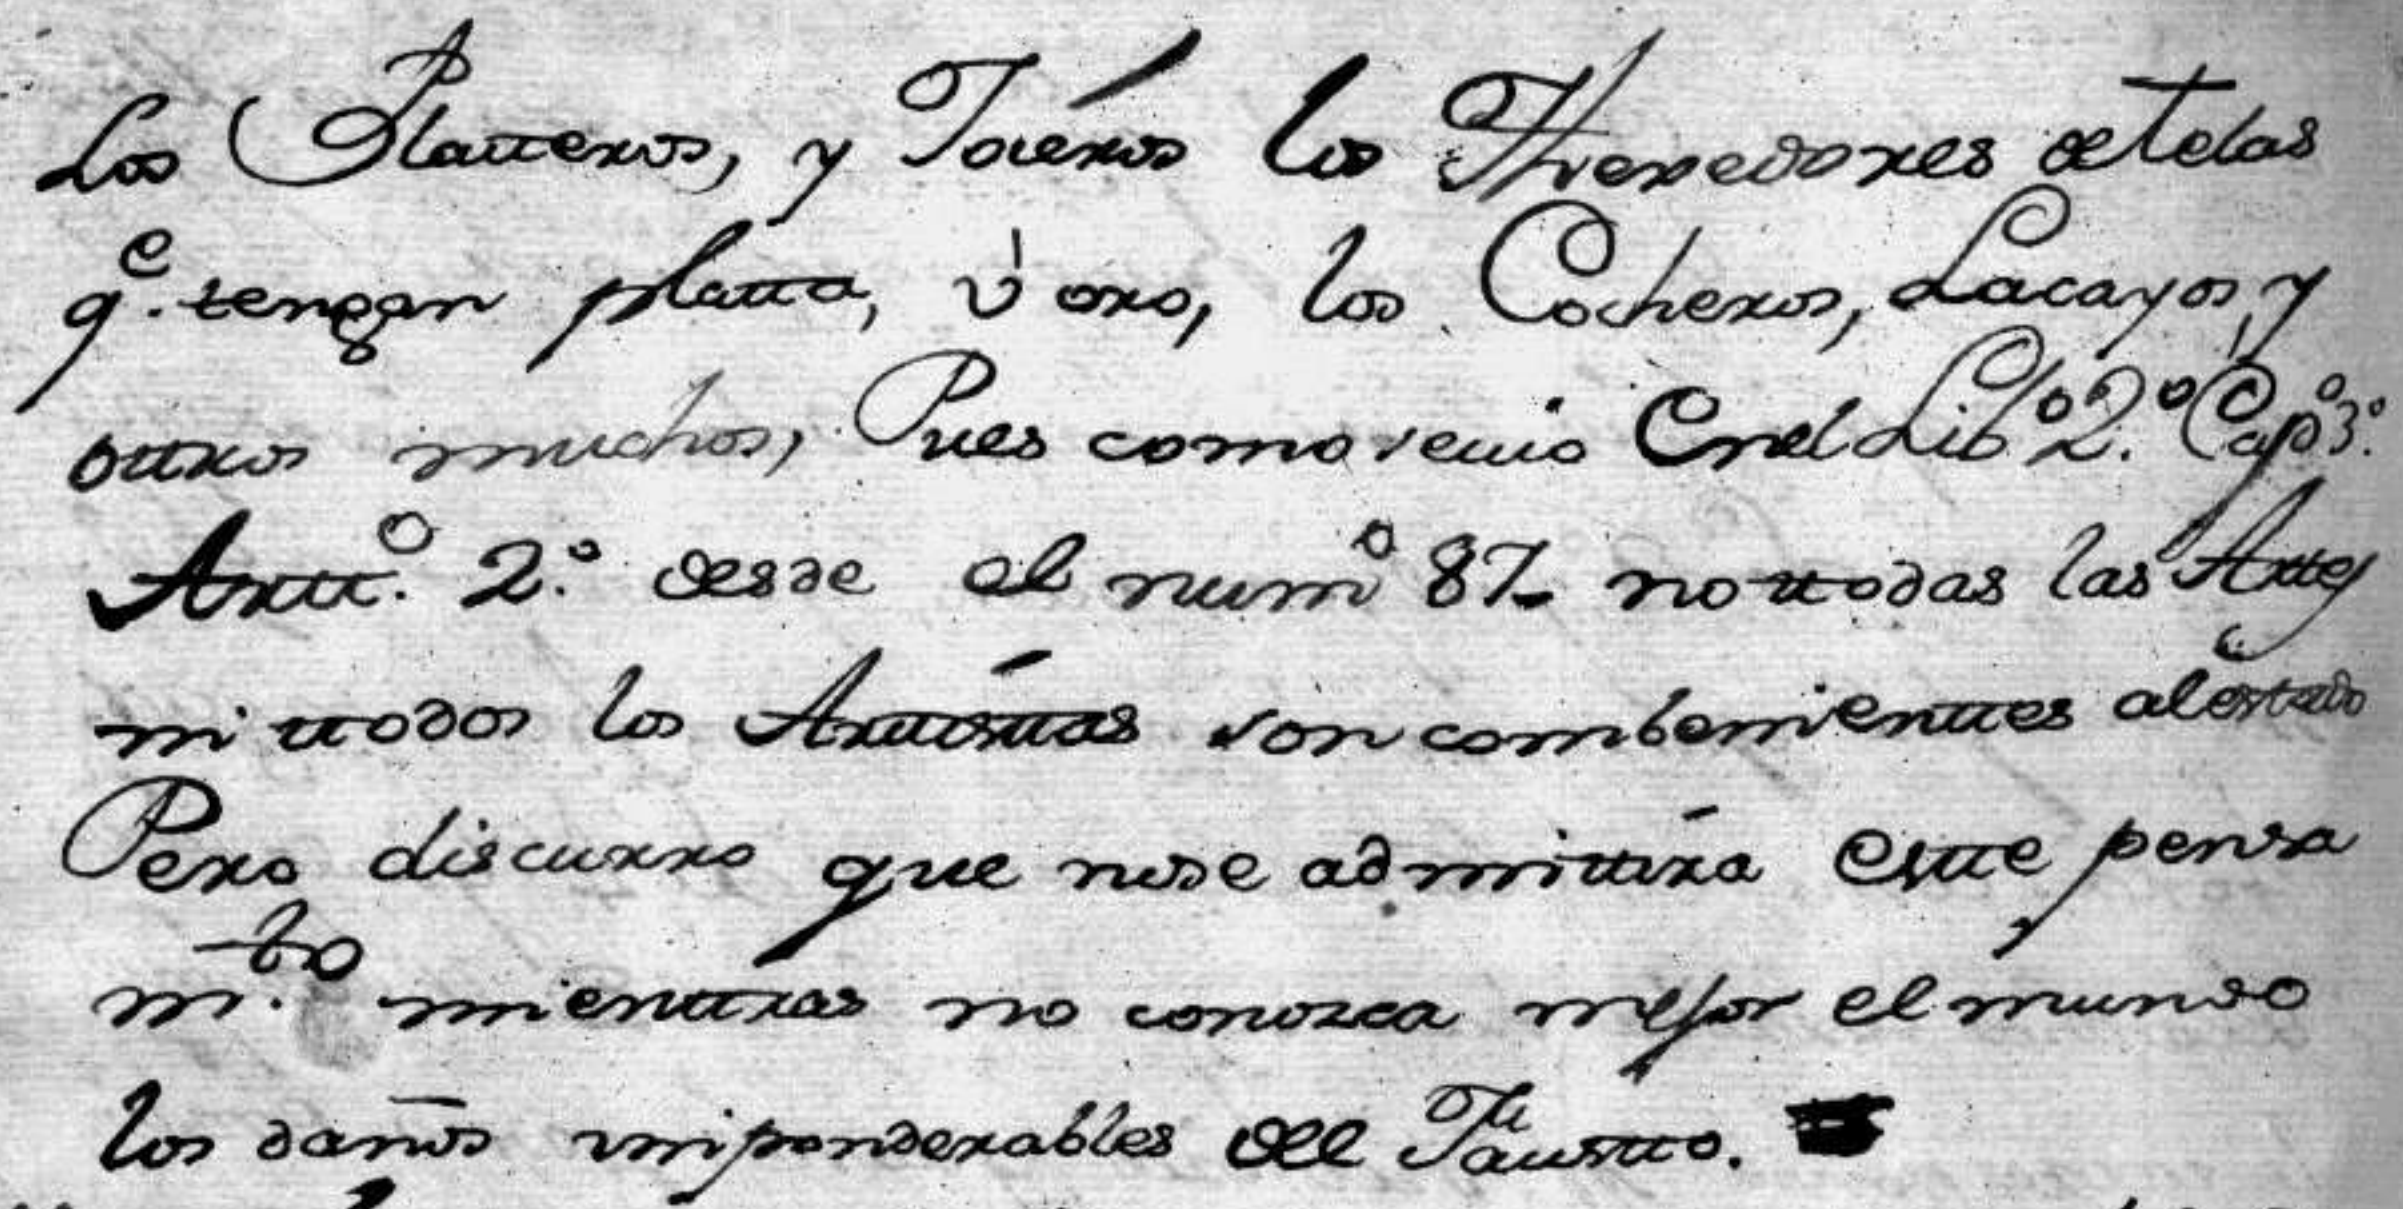 Los Platteros, y Toreros los Thexedores de telas
q.e tengan platta, ù oro, los Cocheros, Lacayos, y
ottros muchos, Pues como se vio En el Lib.o 2.o Cap.o 3.o
Artt.o 2.o desde el num.o 87 no ttodas las Arttes
ni ttodos los Arttísttas son combenienttes al estado
Pero discurro que no se admittirá estte pensa
m.to mienttras no conozca mejor el mundo
los daños imponderables del Faustto.